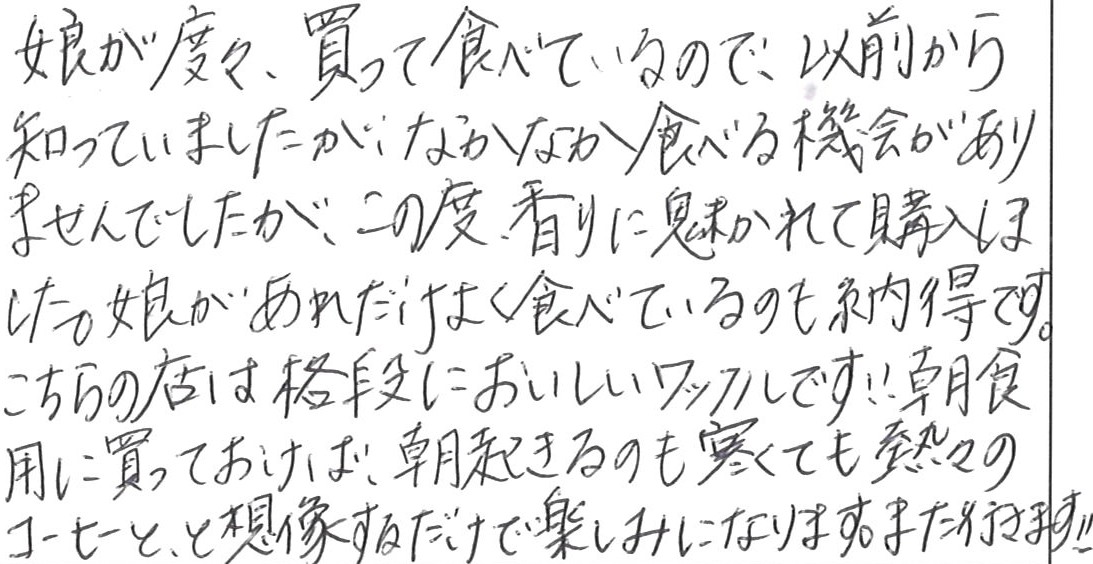 娘が度々、買って食べているので、以前から
知っていましたが、なかなか食べる機会があり
ませんでしたが、この度、香りに魅かれて購入しま
した。娘があれだけよく食べているのも納得です。
こちらの店は格段においしいワッフルです!!朝食
用に買っておけば、朝起きるのも寒くても熱々の
コーヒーと、と想像するだけで楽しみになります。また行きます!!